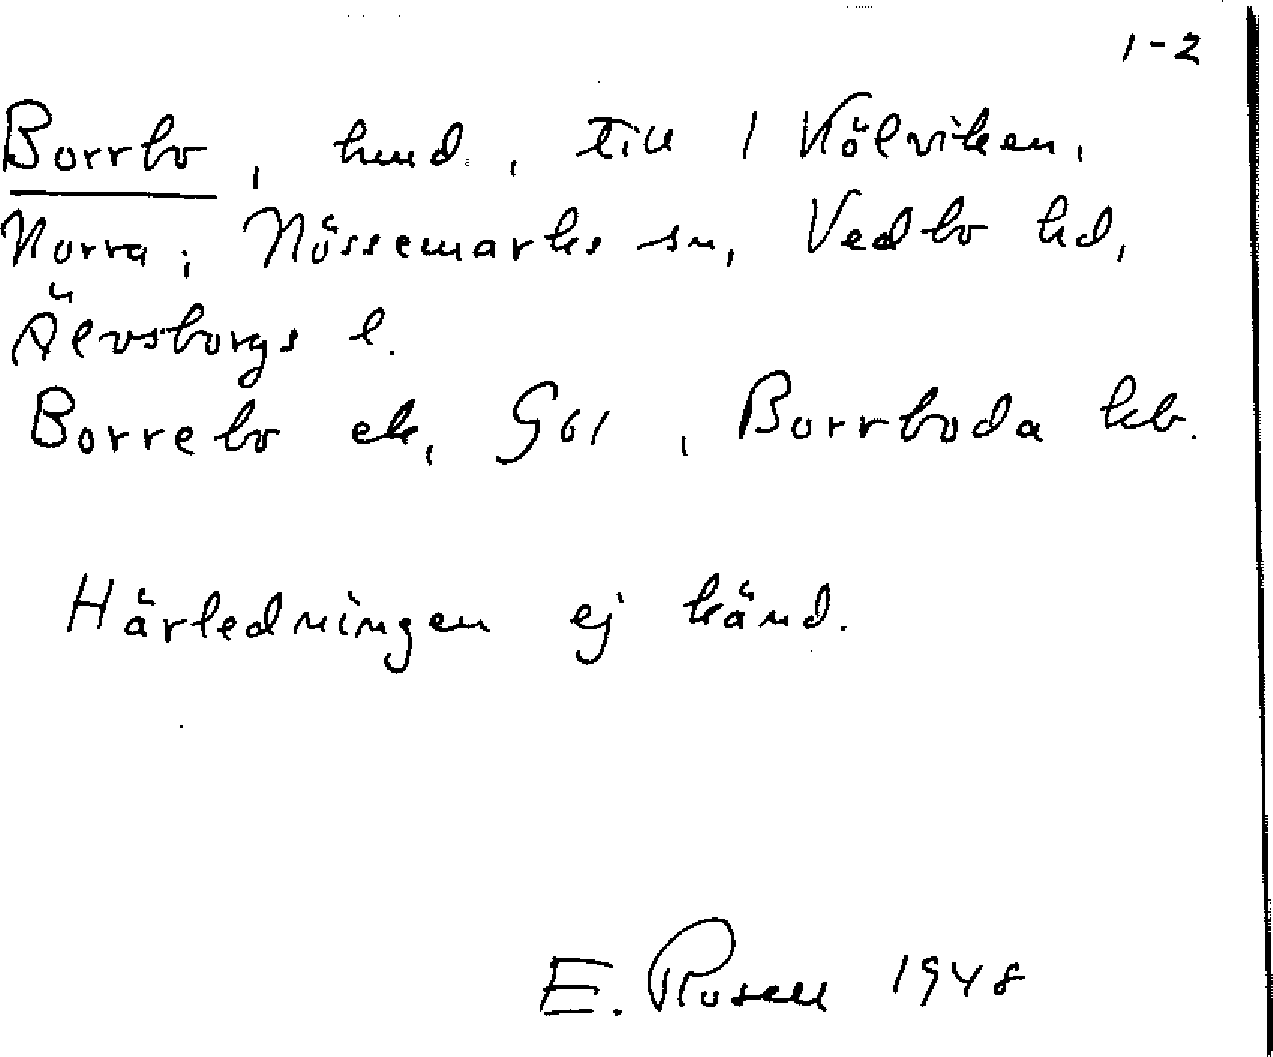 1-2
Borrbo, hmd., till 1 Kölviken,
Norra, Nössemarks sn, Vedbo hd,
Älvsborgs l.
Borrebo ek, G61, Borrboda kb.
Härledningen ej känd.
E. Rosell 1948